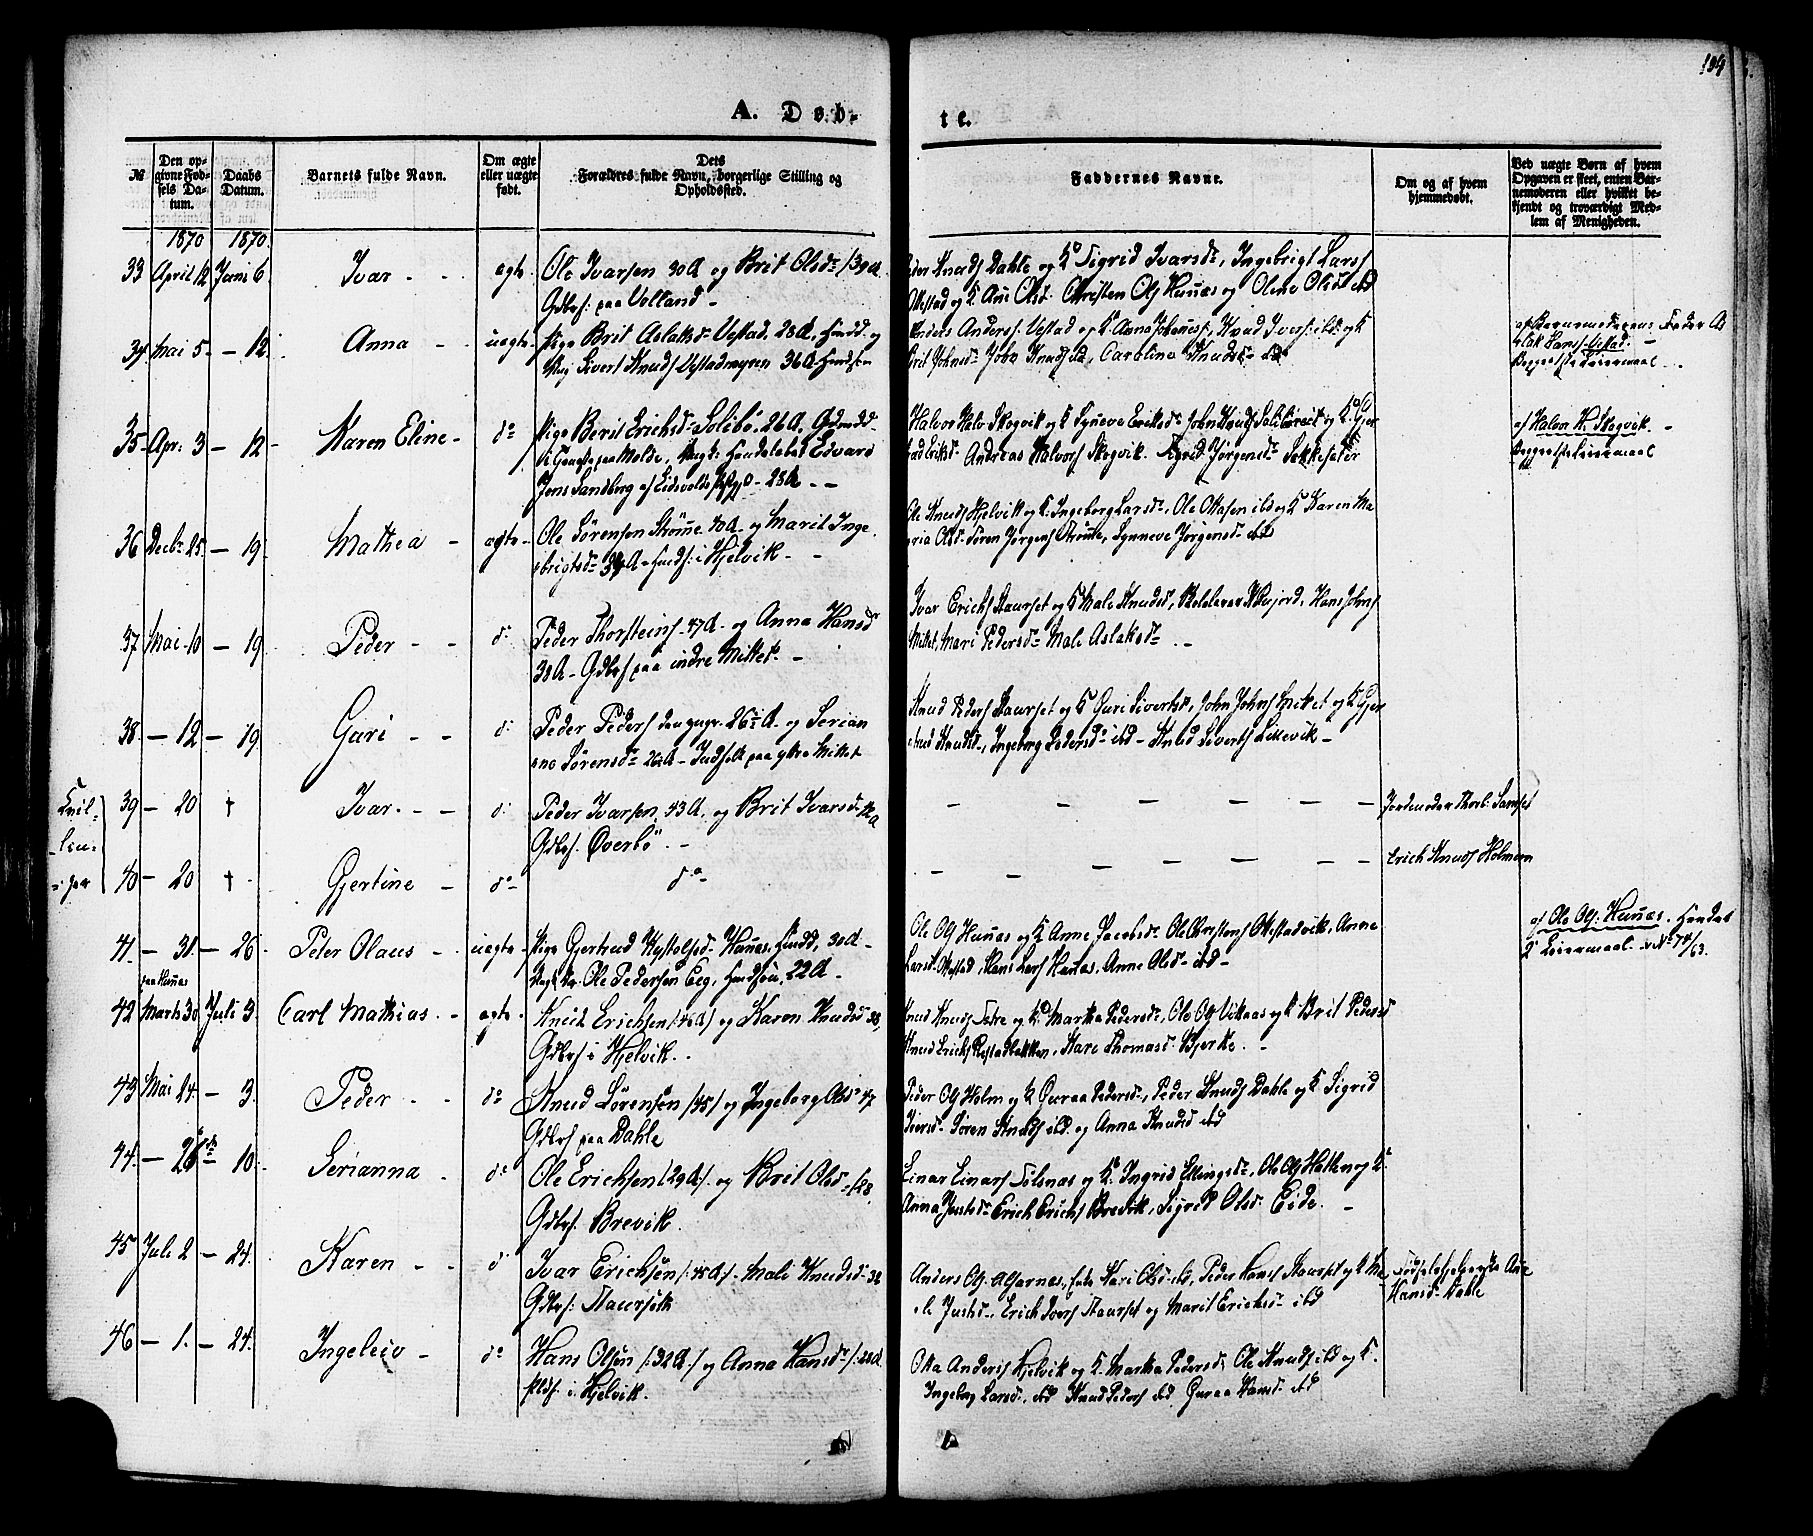 104
A. Døb-
te.
№
Den op-
givne Fød-
sels Da-
tum.
Daabs
Datum.
Barnets fulde Navn.
Om ægte
eller uægte
født.
Dets
Forældres fulde Navn, borgerlige Stilling og
Opholdssted.
Faddernes Navne.
Om og af hvem
hjemmedøbt.
Ved uægte Børn af hvem
Opgaven er skeet, enten Bar-
nemoderen eller hvilket be-
kjendt og troværdigt Med-
lem af Menigheden.
1870 1870.
33 April 12 Juni 6. Ivar - - ægte
Ole Ivarsen 30 A og Brit Olsdr /39 A
Gdbrf: paa Volland -
Peder Knuds Dahle og K Sigrid Ivarsdr, Ingebrigt Lars
Ottestad og K. Ane Olsd. Christen Ols Hunæs og Oline Olsd ibd
34. Mai 5 - - 12. Anna - - uægte
Pige Brit Aslaksd Vestad, 28 A.
Sivert Knuds Vestadmyren 36 A.
Anders Anders: Vestad og K. Anna Johannesd, Knud Ivers: ibd: og K
Brit Johnsdr John Knuds ibd, Carolina Knudsdr ibd
af Barnemoderens Fader As
lak Hans: Vestad. -
Begges 1ste Leiermaal
35 Apr: 3 - 12 - Karen Eline - do
Pige Berit Erichsd Solibø, 26 A.
paa Molde, Edvard
Jens Sandberg af Eidsvold - 28 A - -
Halvor Halv Skogvik og K Synneve Eriksdr John
Andreas Halvors Skogvik. Sigrid Jørgensdr
af Halvor H. Skogvik. -
Begges 1ste Leiermaal
36 Decbr 25. - 19. Mathea - ægte -
Ole Sørensen Strømme 40 A. og Marit Inge
brigtsdr 39 A - Hjelvik - -
Ole Knuds Hjelvik og K. Ingeborg Larsdr, Ole Ottesen ibd og K Karen Ma
gria Olsd Søren Jørgens Strømme, Synneve Jørgensdr ibd
37 Mai 10 - 19 Peder - - do
Peder Thorsteins - 47 A - og Anna Hansdr
38 A - Gdbrf paa indre Mittet -
Ivar Erichs Staurset og K Male Knudsd, Hans Johns
Mittet, Mari Pedersdr Male Aslaksdr - -
38 - 12 - 19 Guri - - d
Peder Peders 26 A - og Serian
ne Sørensdr 26 A - Indfolk paa ytre Mittet
Knud Peders Staurset og K Guri Sivertsd, John Johns Mittet og K Gjer
trud Knudsd, Ingeborg Pedersdr ibd - Knud Siverts Lillevik -
Tvil-
lin-
ger
39 - 20 † Ivar. - - d
Peder Ivarsen, 43 A, og Brit Ivarsd 42 A
Gdbrf. Øverbø. -
- - - - - - - Jordemoder Thorb: Samset
40 - 20 † Gjertine - do -
do
- - - - - - Erich Knuds Holmen
41 - 31 - 26 Peter Olaus - uægte -
Pige Gjertrud Hunæs, 30 A -
Ole Pedersen Eeg, 22 A -
paa Hunæs
Ole Ols Hunæs og K Anne Jacobsdr Ole Christens Ottestadvik, Anne
Larsd Ottestad, Hans Lars Hunæs, Anne Olsd ibd -
af Ole Ols: Hunæs. Hendes
2 Leiermaal. v. No 74/63.
42 Marts 30 Juli 3. Carl Mathias - - ægte -
Knud Erichsen (46 A) og Karen Knudsd 38,
Gdbrf i Hjelvik. -
Knud Knuds Sætre og K Martha Pedersdr, Ole Ols Vikaas og K Brit Pedersd
Knud Erichs Rypstadbakken, Kari Thomasd Bjerke. -
43 Mai 24. - 3. Peder - - do
Knud Sørensen (45) og Ingeborg Olsd 47
Gdbrf paa Dahle
Peder Ols Holm og K Guraa Pedersdr, Peder Knuds Dahle og K. Sigrid
Iversd Søren Knuds ibd. og Anna Knudsd ibd
44. - 28 - 10. Serianna - do
Ole Erichsen (29 A). og Brit Olsd - /28,
Gdbrf. Brevik.
Einar Einars Tilsnæs og K. Ingrid Ellingsdr, Ole Ols Hatlen og K
Anna Justsdr Erich Erichs Brevik, Sigrid Olsd Eide. -
45 Juli 2 - 24. Karen - - d
Ivar Erichsen (: 45 A:) - Mali Knudsd 38
Gdbrf: Staursæt
Anders Ols. Alfarnæs, Kari Olsd ibd, Peder Hans Staurset og K Ma
li Justsd, Erich Ivers Staurset og Marit Ericksd ibd
Fødselshjelperske Ane
Hansd Dahle
46 - 1. - 24. Ingeleiv - do
Hans Olsen (: 32 A:) og Anna Hansdr /: 28 A.
i Hjelvik.
Ole Anders Hjelvik og K. Martha Pedersd, Ole Knuds ibd og K.
Ingeborg Larsd, ibd Knud Peders ibd Guraa Hansd ibd